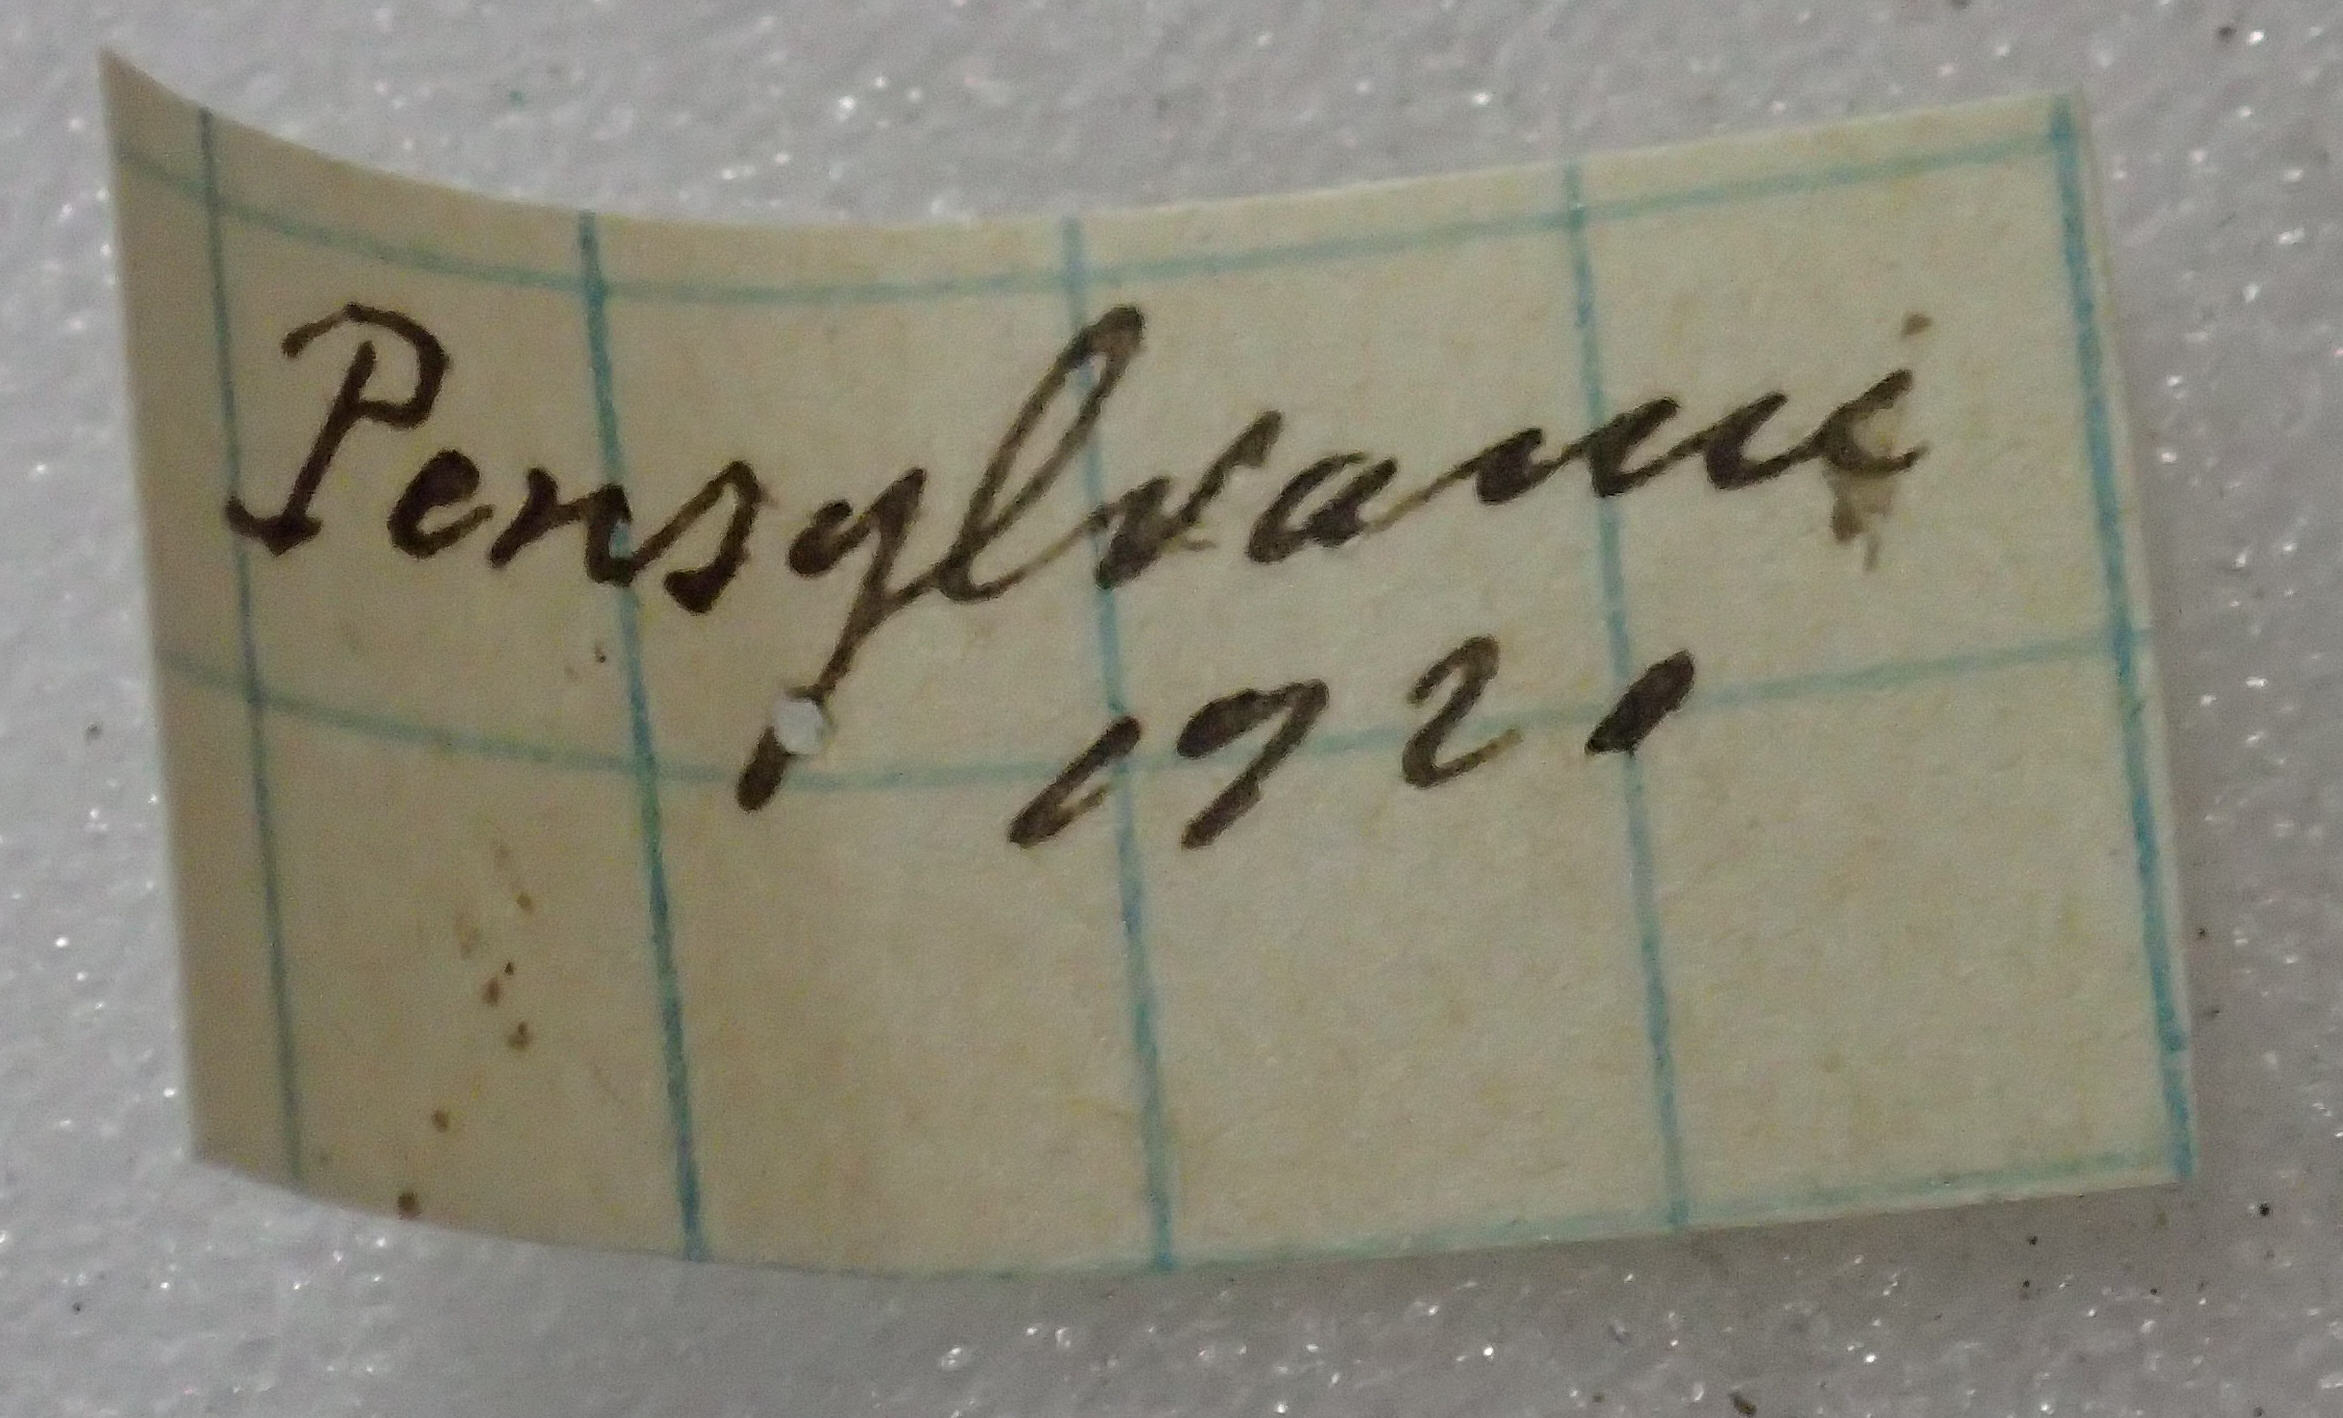 Pensylvanii
1920